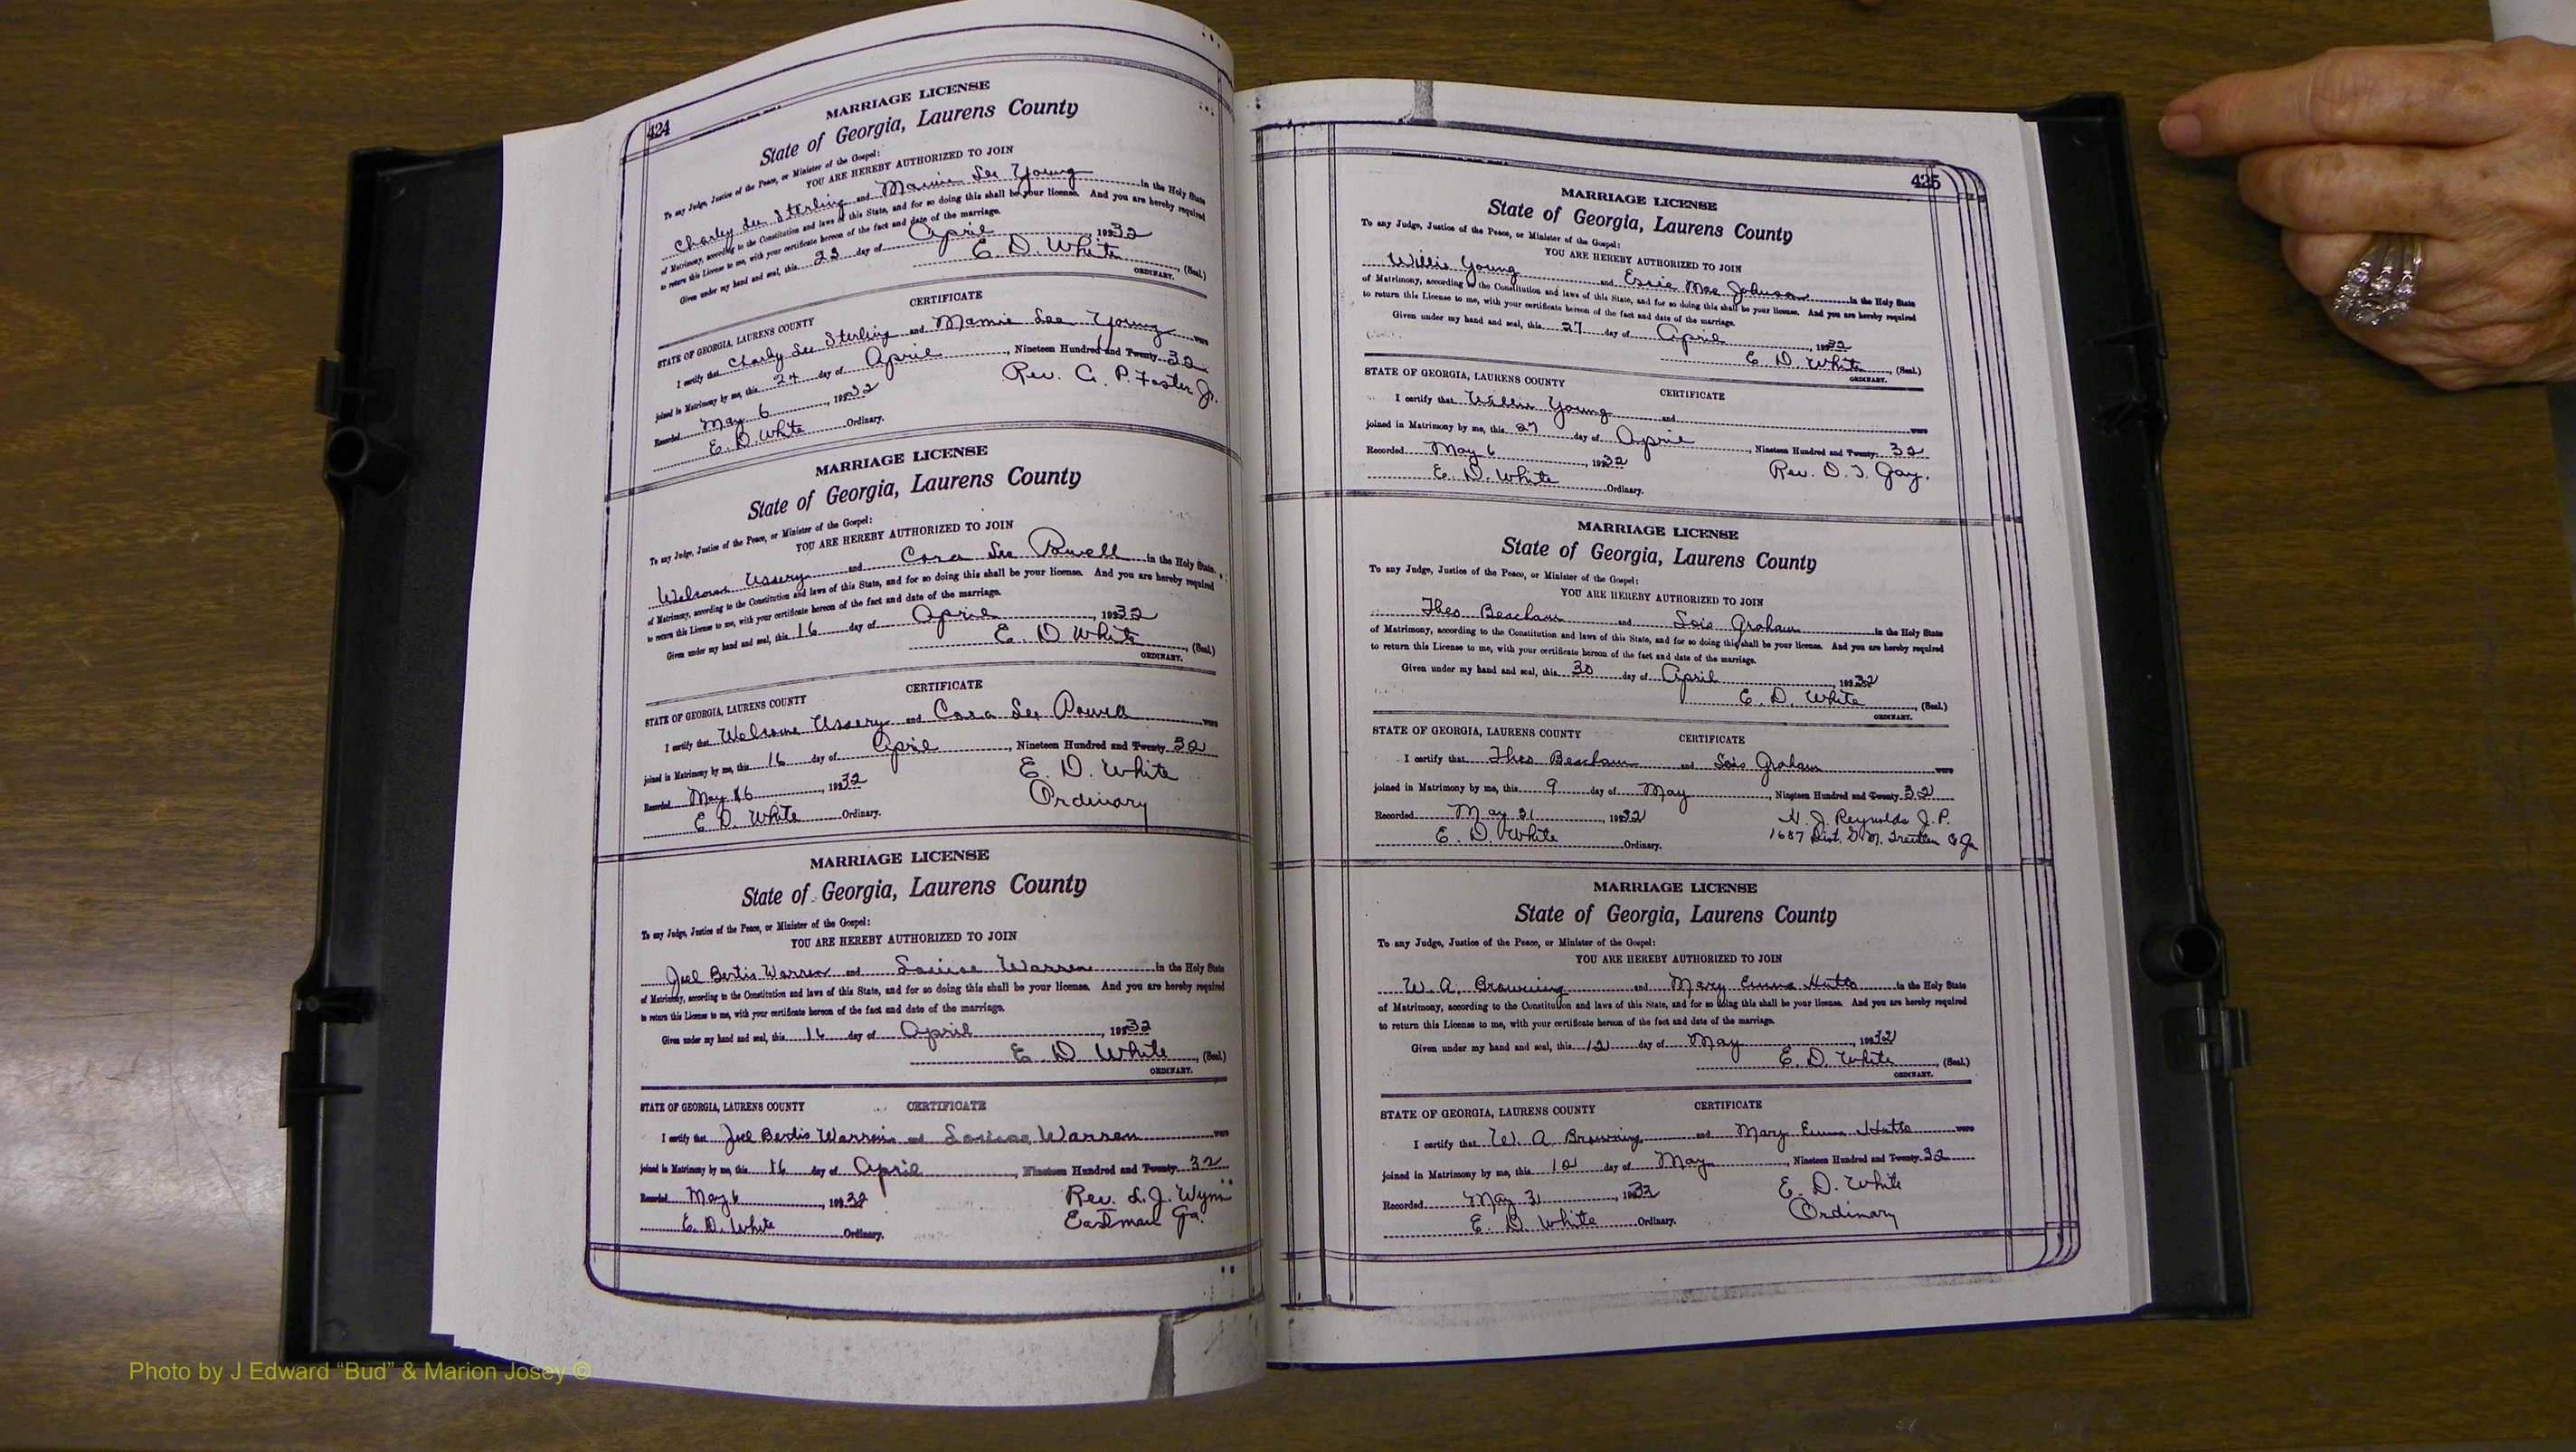 424
MARRIAGE LICENSE
State of Georgia, Laurens County
To any Judge, Justice of the Peace, or Minister of the Gospel:
YOU ARE HEREBY AUTHORIZED TO JOIN
Charley Lee Sterling and Mamie Lee Young in the Holy State
of Matrimony, according to the Constitution and laws of this State, and for so doing this shall be your license. And you are hereby required
to return this License to me, with your certificate hereon of the fact and date of the marriage.
Given under my hand and seal, this 23 day of April, 1932
E. D. White, (Seal.)
ORDINARY.
CERTIFICATE
STATE OF GEORGIA, LAURENS COUNTY
I certify that Charly Lee Sterling and Mamie Lee Young were
joined in Matrimony by me, this 24 day of April, Nineteen Hundred and Twenty 32
Recorded May 6, 1932 Rev. G. P. Foster Jr.
E. D. White Ordinary.
MARRIAGE LICENSE
State of Georgia, Laurens County
To any Judge, Justice of the Peace, or Minister of the Gospel:
YOU ARE HEREBY AUTHORIZED TO JOIN
Welcome Ussery and Cora Lee Powell in the Holy State
of Matrimony, according to the Constitution and laws of this State, and for so doing this shall be your license. And you are hereby required
to return this License to me, with your certificate hereon of the fact and date of the marriage.
Given under my hand and seal, this 16 day of April, 1932
E. D. White, (Seal.)
ORDINARY.
CERTIFICATE
STATE OF GEORGIA, LAURENS COUNTY
I certify that Welcome Ussery and Cora Lee Powell were
joined in Matrimony by me, this 16 day of April, Nineteen Hundred and Twenty 32
Recorded May 6, 1932 E. D. White
E. D. White Ordinary. Ordinary
MARRIAGE LICENSE
State of Georgia, Laurens County
To any Judge, Justice of the Peace, or Minister of the Gospel:
YOU ARE HEREBY AUTHORIZED TO JOIN
Joel Bertis Warren and Louise Warren in the Holy State
of Matrimony, according to the Constitution and laws of this State, and for so doing this shall be your license. And you are hereby required
to return this License to me, with your certificate hereon of the fact and date of the marriage.
Given under my hand and seal, this 16 day of April, 1932
E. D. White, (Seal.)
ORDINARY.
STATE OF GEORGIA, LAURENS COUNTY CERTIFICATE
I certify that Joel Bertis Warren and Louise Warren were
joined in Matrimony by me, this 16 day of April, Nineteen Hundred and Twenty 32
Recorded May 6, 1932 Rev. L. J. Wynn
E. D. White Ordinary. Eastman Ga.
425
MARRIAGE LICENSE
State of Georgia, Laurens County
To any Judge, Justice of the Peace, or Minister of the Gospel:
YOU ARE HEREBY AUTHORIZED TO JOIN
Willie Young and Essie Mae Johnson in the Holy State
of Matrimony, according to the Constitution and laws of this State, and for so doing this shall be your license. And you are hereby required
to return this License to me, with your certificate hereon of the fact and date of the marriage.
Given under my hand and seal, this 27 day of April, 1932
E. D. White, (Seal.)
ORDINARY.
STATE OF GEORGIA, LAURENS COUNTY CERTIFICATE
I certify that Willie Young and were
joined in Matrimony by me, this 27 day of April, Nineteen Hundred and Twenty 32
Recorded May 6, 1932 Rev. D. T. Gay.
E. D. White Ordinary.
MARRIAGE LICENSE
State of Georgia, Laurens County
To any Judge, Justice of the Peace, or Minister of the Gospel:
YOU ARE HEREBY AUTHORIZED TO JOIN
Theo Beacham and Lois Graham in the Holy State
of Matrimony, according to the Constitution and laws of this State, and for so doing this shall be your license. And you are hereby required
to return this License to me, with your certificate hereon of the fact and date of the marriage.
Given under my hand and seal, this 30 day of April, 1932
E. D. White, (Seal.)
ORDINARY.
STATE OF GEORGIA, LAURENS COUNTY CERTIFICATE
I certify that Theo Beacham and Lois Graham were
joined in Matrimony by me, this 9 day of May, Nineteen Hundred and Twenty 32
Recorded May 31, 1932 J. Reynolds J. P.
E. D. White Ordinary. 1687 Dist. G. M. Ga
MARRIAGE LICENSE
State of Georgia, Laurens County
To any Judge, Justice of the Peace, or Minister of the Gospel:
YOU ARE HEREBY AUTHORIZED TO JOIN
W. A. Browning and Mary Emma Hutto in the Holy State
of Matrimony, according to the Constitution and laws of this State, and for so doing this shall be your license. And you are hereby required
to return this License to me, with your certificate hereon of the fact and date of the marriage.
Given under my hand and seal, this 12 day of May, 1932
E. D. White, (Seal.)
ORDINARY.
STATE OF GEORGIA, LAURENS COUNTY CERTIFICATE
I certify that W. A Browning and Mary Emma Hutto were
joined in Matrimony by me, this 12 day of May, Nineteen Hundred and Twenty 32
Recorded May 31, 1932 E. D. White
E. D. White Ordinary. Ordinary
Photo by J Edward “Bud” & Marion Josey ©